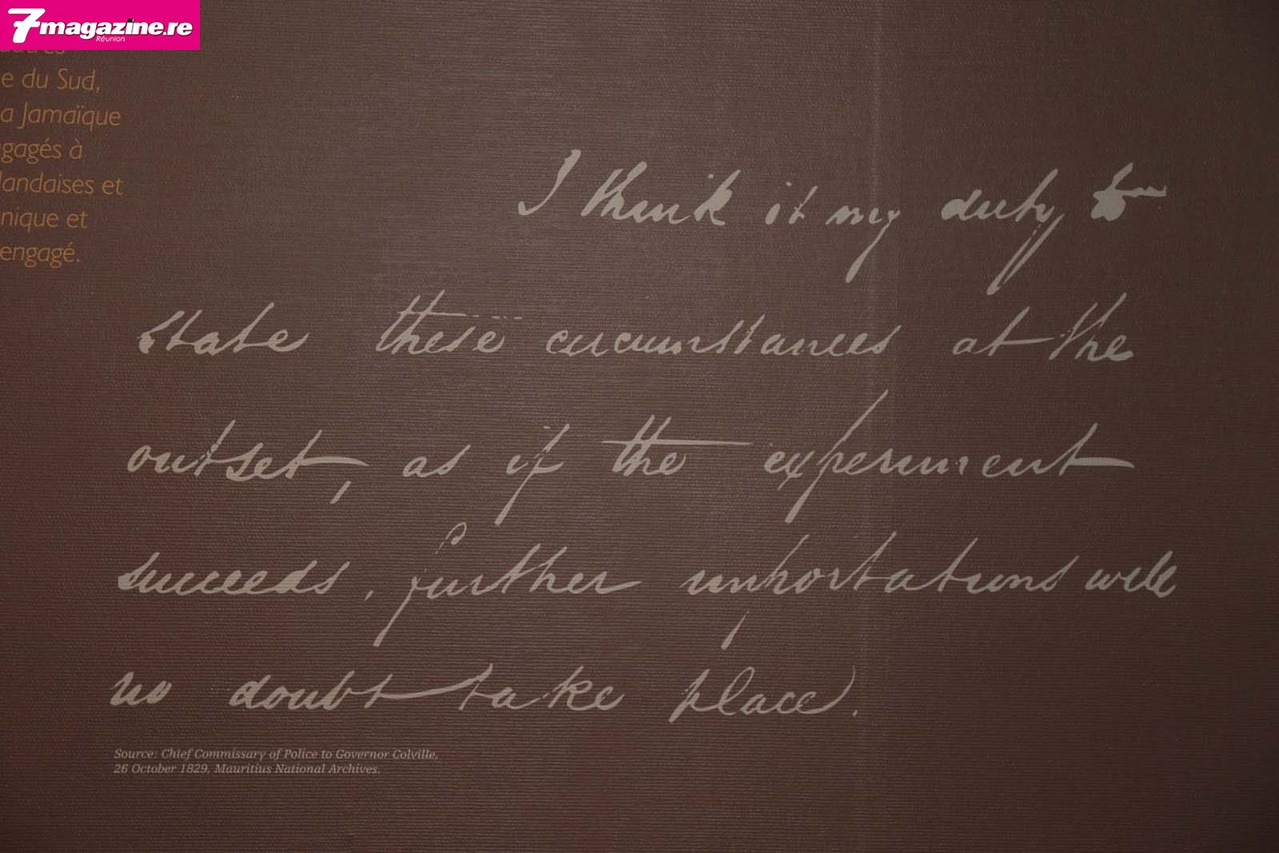 7magazine.re
Réunion
e du Sud,
a Jamaïque
gagés à
landaises et
nique et
engagé.
I think it my duty to
state these circumstances at the
outset, as if the experiment
succeeds, further importations will
no doubt take place.
Source: Chief Commissary of Police to Governor Colville,
26 October 1829, Mauritius National Archives.